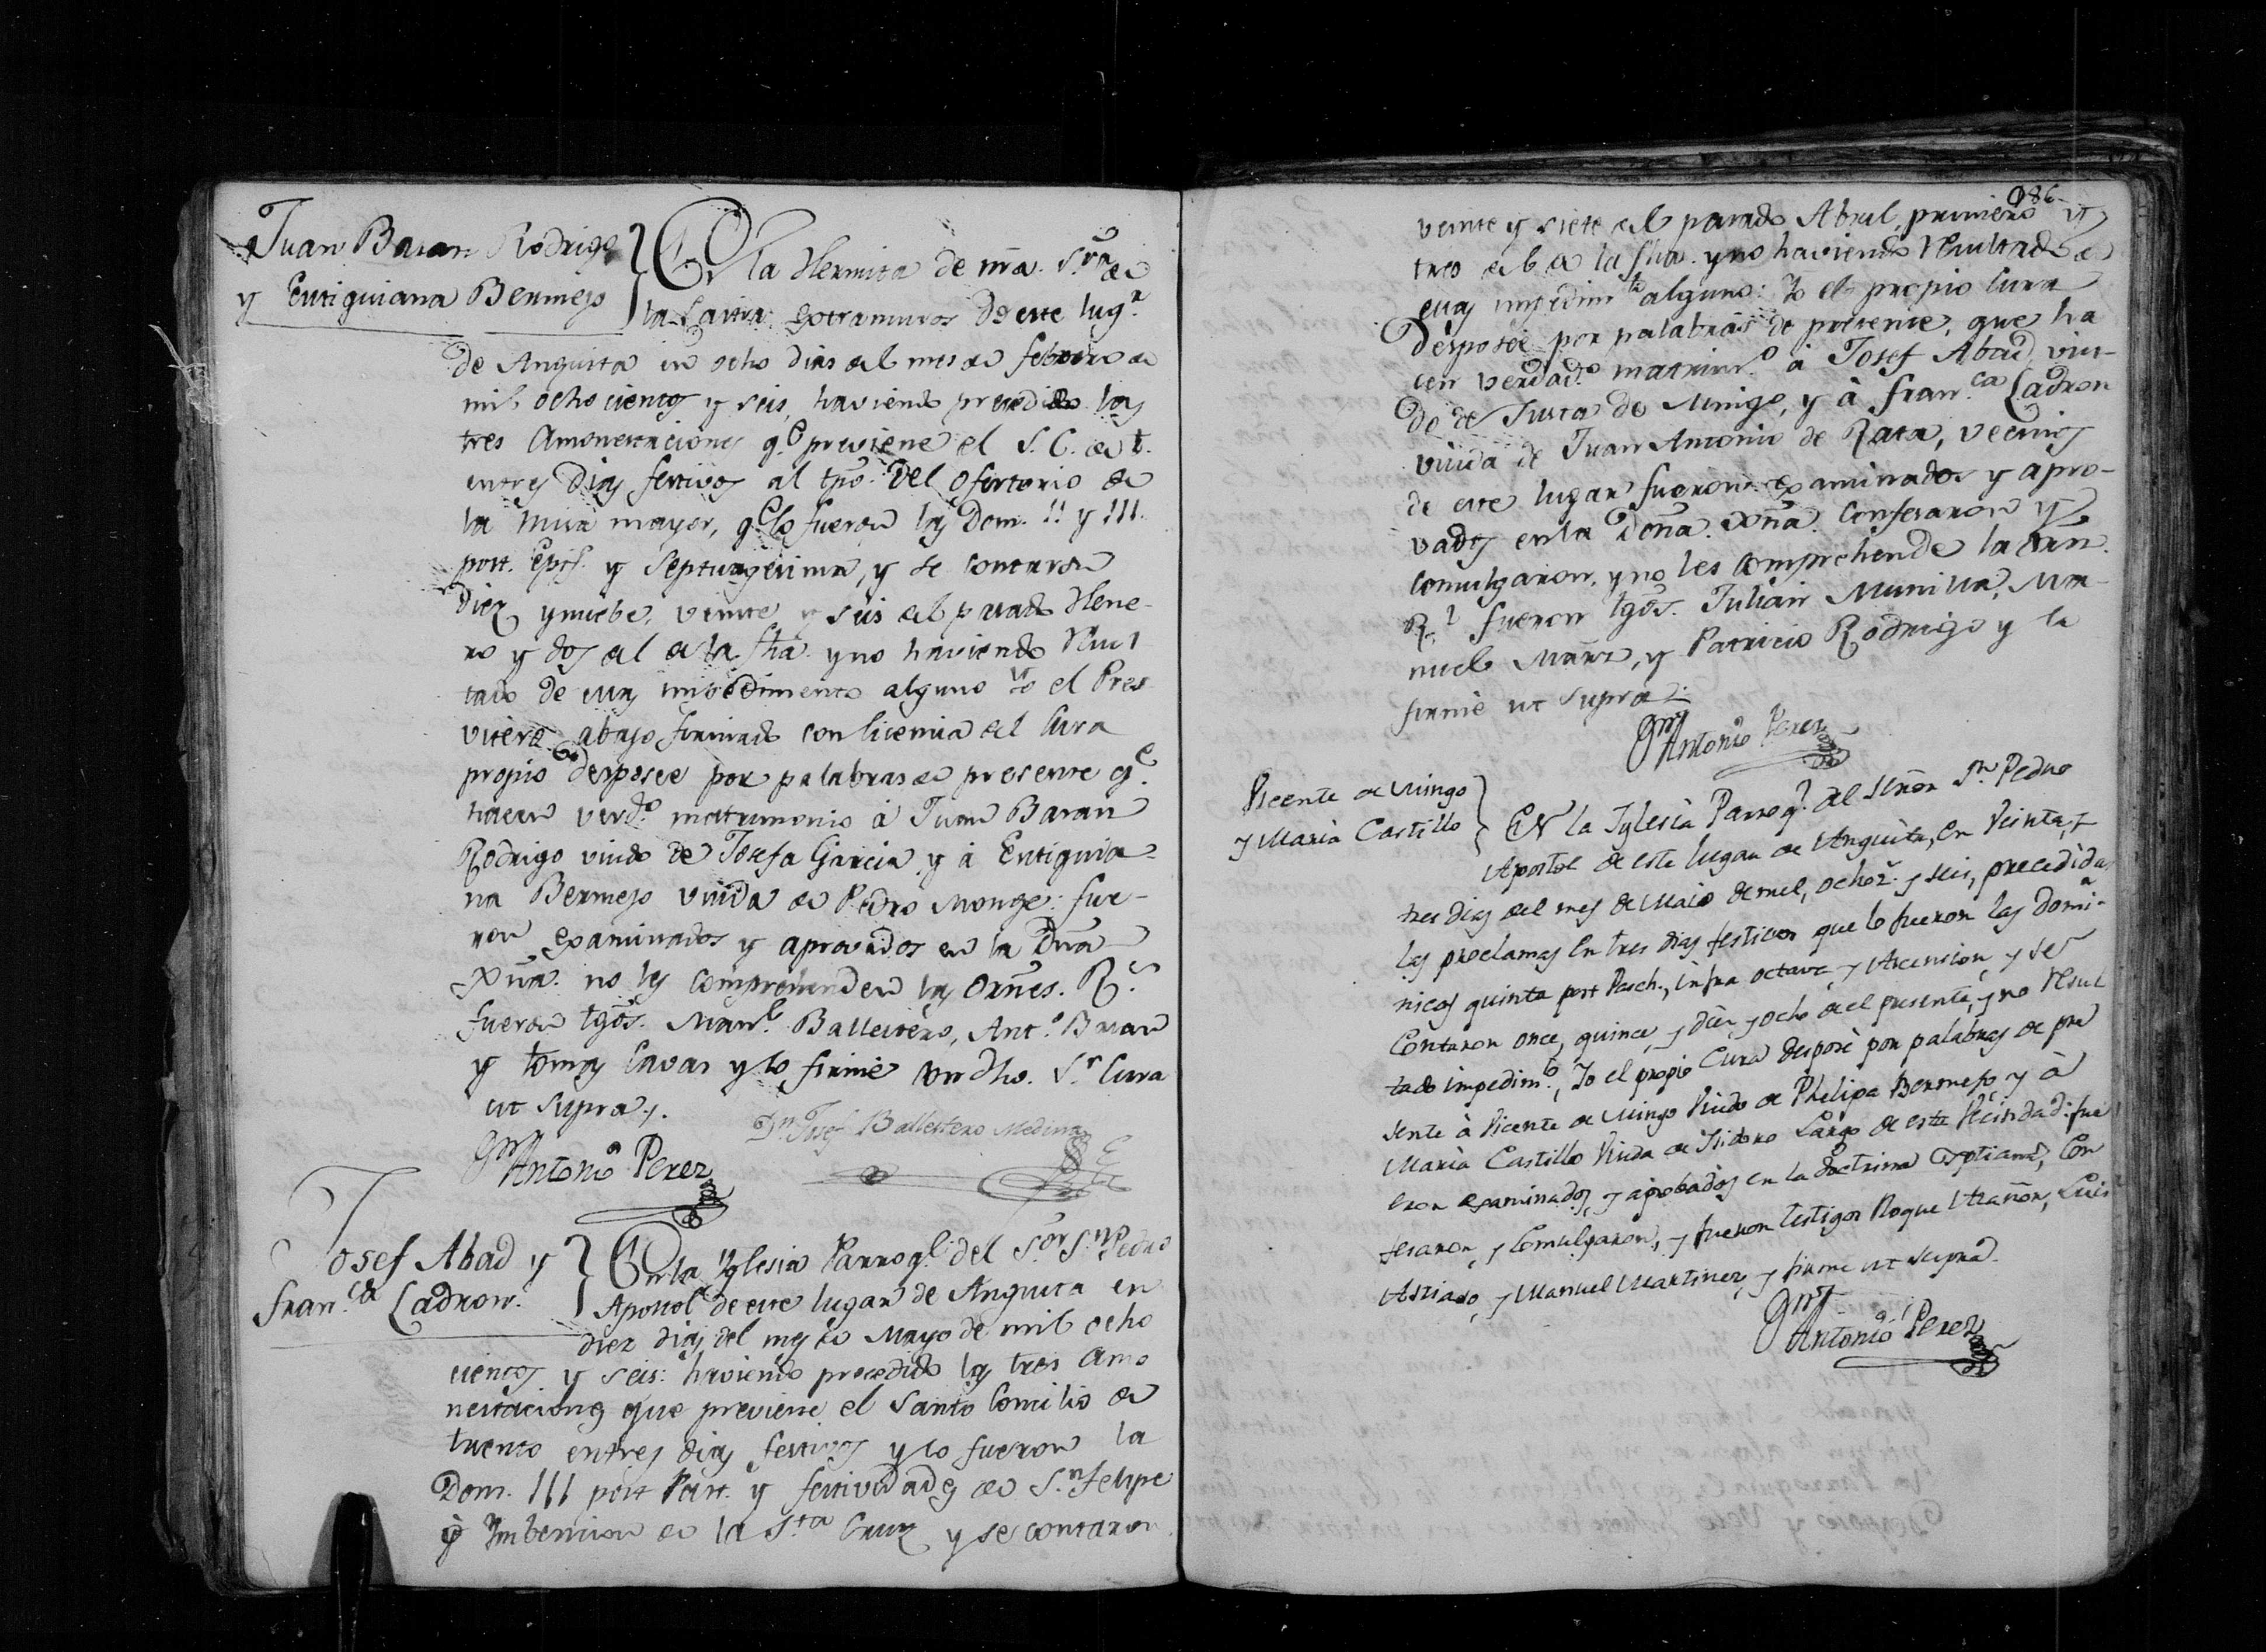 Juan Baran Rodrigo
y Eutiquiana Bermejo
En la Hermita de ñra. S.ra de
la Lastra extramuros de este lug.r
de Anguita en ocho dias del mes de febrero de
mil ochocientos y seis, haviendo precedido las
tres Amonestaciones q.e previene el S. C. de t.
entres dias festivos al tpo. del ofertorio de
la misa mayor, q.e lo fueron las Dom. II y III.
post. Epif. y Septuagesima, y se contaron
diez ynuebe, veinte y seis del pasado Hene-
ro y dos del de la fha. yno haviendo Resul
tado de ellas impedimento alguno Yo el Pres
vitero abajo firmado con licencia del Cura
propio desposee por palabras de presente q.e
hacen verd.o matrimonio à Juan Baran
Rodrigo viudo de Josefa Garcia y à Eutiquia-
na Bermejo viuda de Pedro Monge: fue-
ron examinados y aprovados en la Dña
Xña. no les comprehenden las Orñes. R.s
fueron tgos. Man.l Ballestero, Ant.o Baran
y tomas Casas y lo firmé con dho. S.r Cura
ut supra.
Antonio Perez
D.n Josef Ballestero Medina
Josef Abad y
Fran.ca Ladron.
En la Yglesia Parroq.l del S.or S.n Pedro
Apostol de este lugar de Anguita en
diez dias del mes de Mayo de mil ocho
cientos y seis: haviendo precedido las tres Amo
nestaciones que previene el Santo Concilio de
trento entres dias festivos y lo fueron la
Dom. III post Pasc. y festividades de S.n Felipe
y Ymbencion de la S.ta Cruz y se contaron
186
veinte y siete del pasado Abril, primero y
tres del de la fha. yno haviendo Resultado de
ellas impedim.to alguno: Yo el propio Cura
Desposéé por palabras de presente, que ha
cen verdad.o matrim.o à Josef Abad viu-
do de Justa de Mingo, y à Fran.ca Ladron
viuda de Juan Antonio de Rata, vecinos
de este lugar fueron examinados y apro-
vados en la Doña. Xña. Confesaron y
comulgaron, y no les comprehende la orñ.
R.l fueron tgos. Julian Munilla, Ma-
nuel Mañz, y Patricio Rodrigo y lo
firmé ut supra.
Antonio Perez
Vicente de Mingo
y Maria Castillo
EN la Iglesia Parroq.l del Señor S.n Pedro
Apostol de este lugar de Anguita, en Veinta, y
tres dias del mes de Maio de mil, ochoz. y seis, precedidas
las proclamas en tres dias festivos que lo fueron las domi-
nicas quinta post Pasch., infra octava, y Ascension, y se
contaron once, quince, y diez, y ocho del presente, y no Resul
tado impedim.to, Yo el propio Cura desposè por palabras de pre
sente à Vicente de Mingo Viudo de Phelipa Bermejo, y à
Maria Castillo Viuda de Isidoro Largo de esta Vecindad: fue
eron examinados, y aprobados en la doctrina Xptiana, Con
fesaron, y Comulgaron, y fueron testigos Roque Atrañon, Luis
Asriaso, y Manuel Martinez, y firme ut supra.
Antonio Perez